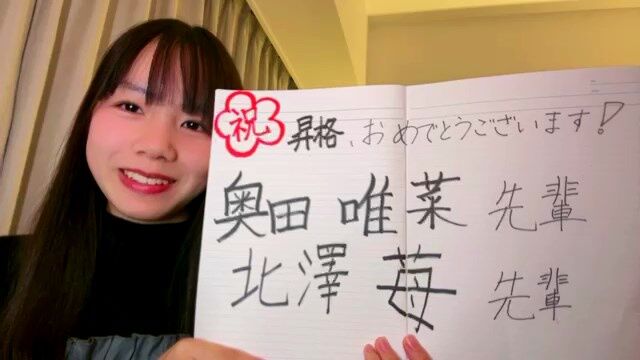 祝 昇格、おめでとうございます!
奥田 唯菜 先輩
北澤 苺 先輩